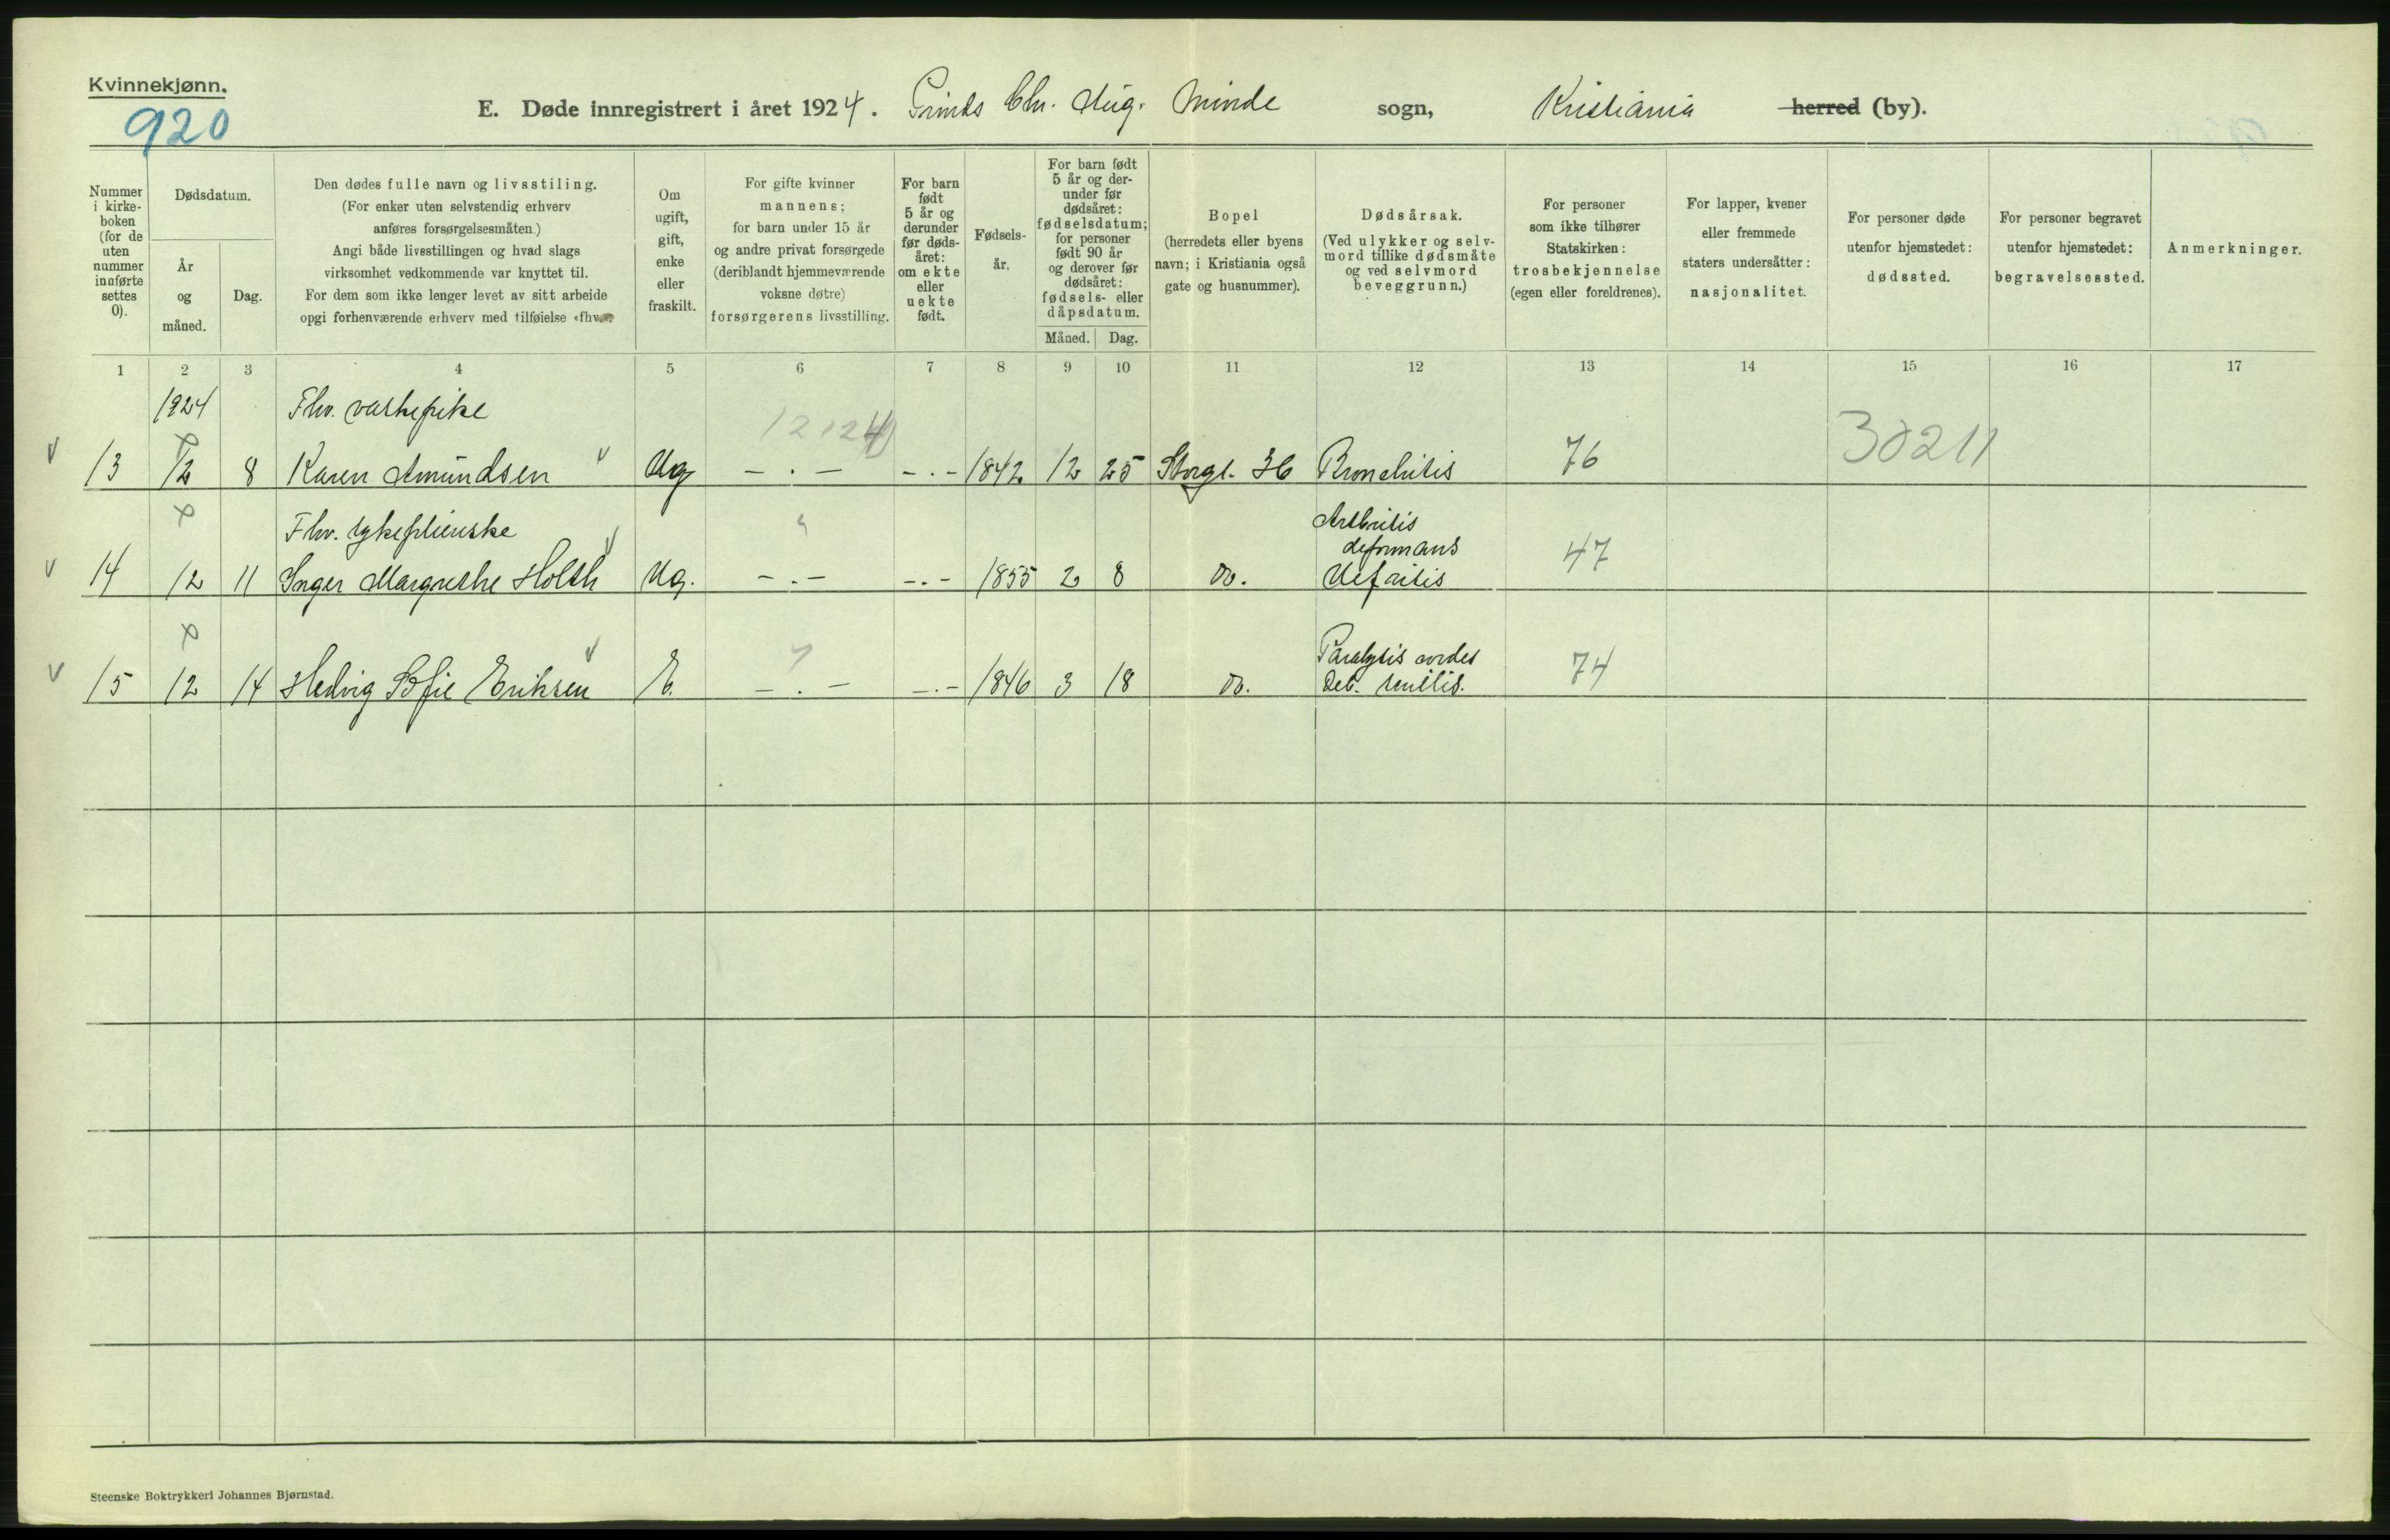 Kvinnekjønn.
920
E. Døde innregistrert i året 1924. Prinds Chr. Aug. Minde sogn, Kristiania herred (by).
Nummer i kirke-boken (for de uten nummer innførte settes 0).
Dødsdatum.
År og måned.
Dag.
Den dødes fulle navn og livsstiling.
(For enker uten selvstendig erhverv
anføres forsørgelsesmåten.)
Angi både livsstillingen og hvad slags
virksomhet vedkommende var knyttet til.
For dem som ikke lenger levet av sitt arbeide
opgi forhenværende erhverv med tilføielse «fhv.»
Om ugift, gift, enke eller fraskilt.
For gifte kvinner
mannens;
for barn under 15 år
og andre privat forsørgede
(deriblandt hjemmeværende
voksne døtre)
forsørgerens livsstilling.
For barn født 5 år og derunder før døds-året: om ekte eller uekte født.
Fødsels-år.
For barn født 5 år og der-under før dødsåret: fødselsdatum; for personer født 90 år og derover før dødsåret: fødsels- eller dåpsdatum.
Måned.
Dag.
Bopel
(herredets eller byens
navn; i Kristiania også
gate og husnummer).
Dødsårsak.
(Ved ulykker og selv-
mord tillike dødsmåte
og ved selvmord
beveggrunn.)
For personer
som ikke tilhører
Statskirken:
trosbekjennelse
(egen eller foreldrenes).
For lapper, kvener
eller fremmede
staters undersåtter:
nasjonalitet.
For personer døde
utenfor hjemstedet:
dødssted.
For personer begravet
utenfor hjemstedet:
begravelsessted.
Anmerkninger.
1 2 3 4 5 6 7 8 9 10 11 12 13 14 15 16 17
1924 Fhv. vaskepike
13 12 8 Karen Amundsen Ug — . — — . — 1842 12 25 Storgt. 36 Bronchitis 76 30211
Fhv. sykepleierske Arthritis
deformans
14 12 11 Inger Margrethe Holth Ug. — . — — . — 1855 2 8 Do. Nefritis 47
Paralysis cordis
15 12 14 Hedvig Sofie Eriksen E. — . — — . — 1846 3 18 Do. Deb. senilis. 74
Steenske Boktrykkeri Johannes Bjørnstad.